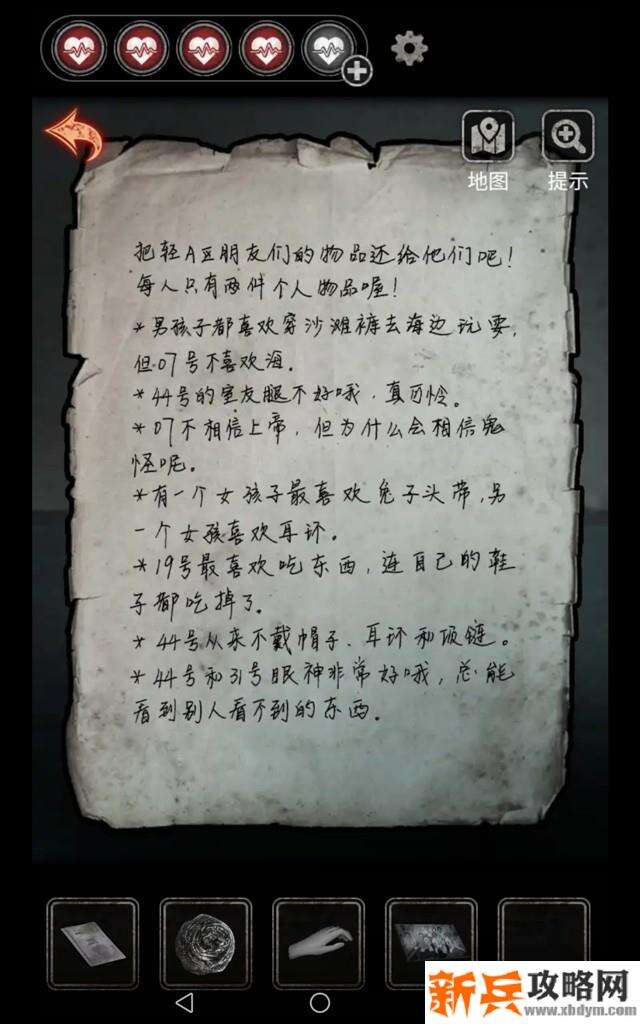 地图
提示
把轻A区朋友们的物品还给他们吧！
每人只有两件个人物品喔！
*男孩子都喜欢穿沙滩裤去海边玩耍，
但07号不喜欢海。
*44号的室友腿不好哦，真可怜。
*07不相信上帝，但为什么会相信鬼
怪呢。
*有一个女孩子最喜欢兔子头带，另
一个女孩喜欢耳环。
*19号最喜欢吃东西，连自己的鞋
子都吃掉了。
*44号从来不戴帽子、耳环和项链。
*44号和31号眼神非常好哦，总能
看到别人看不到的东西。
新兵攻略网
www.xbdym.com